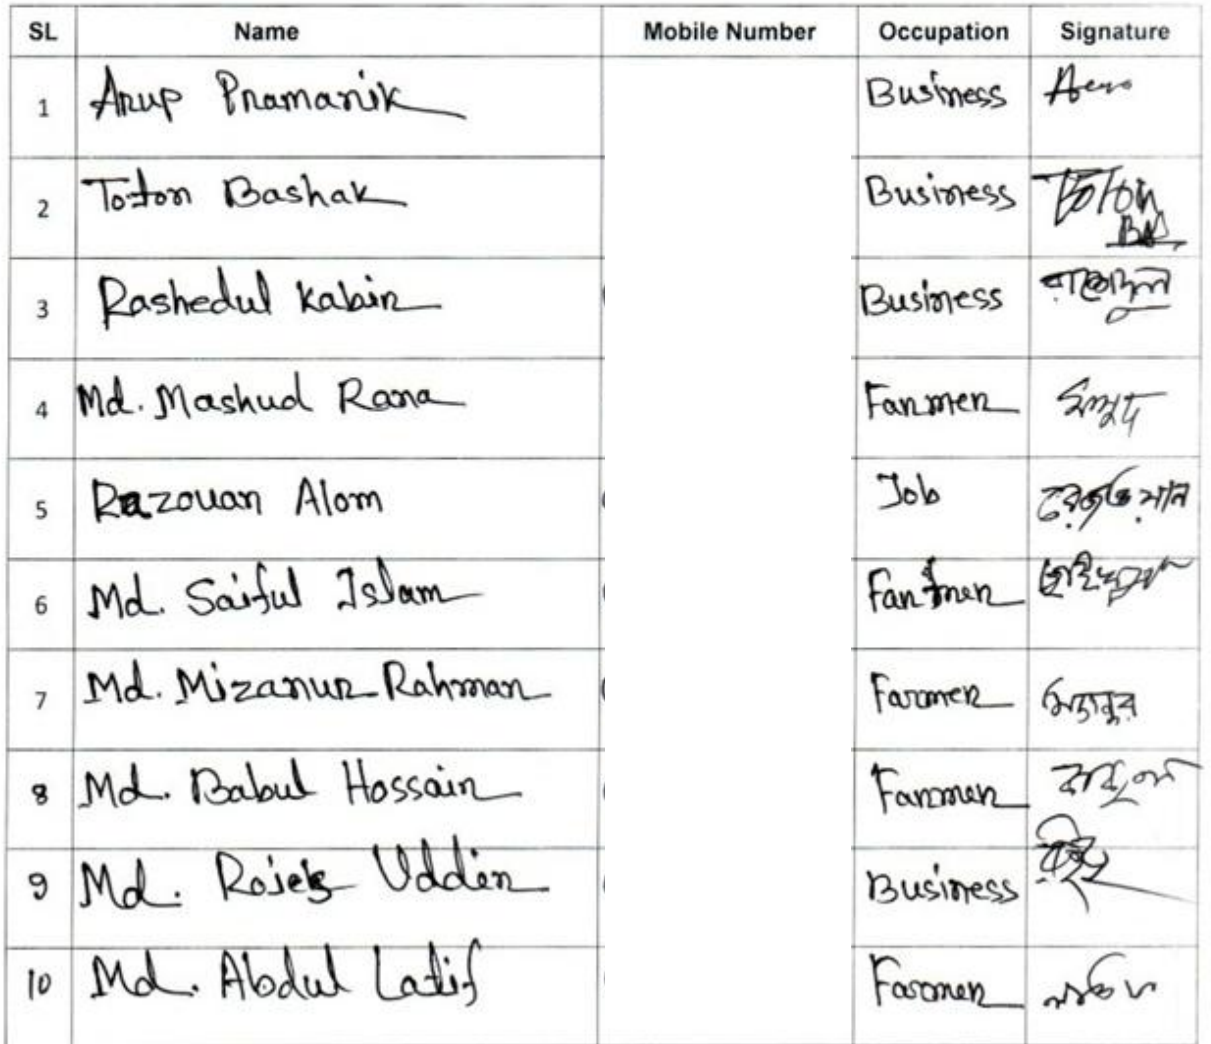 SL Name Mobile Number Occupation Signature
1 Arup Pramanik Business
2 Toton Bashak Business Toton
3 Rashedul Kabir Business
4 Md. Mashud Rana Farmer
5 Razouan Alom Job
6 Md. Saiful Islam Farmer
7 Md. Mizanur Rahman Farmer মিজানুর
8 Md. Babul Hossain Farmer
9 Md. Uddin Business
10 Md. Abdul Latif Farmer